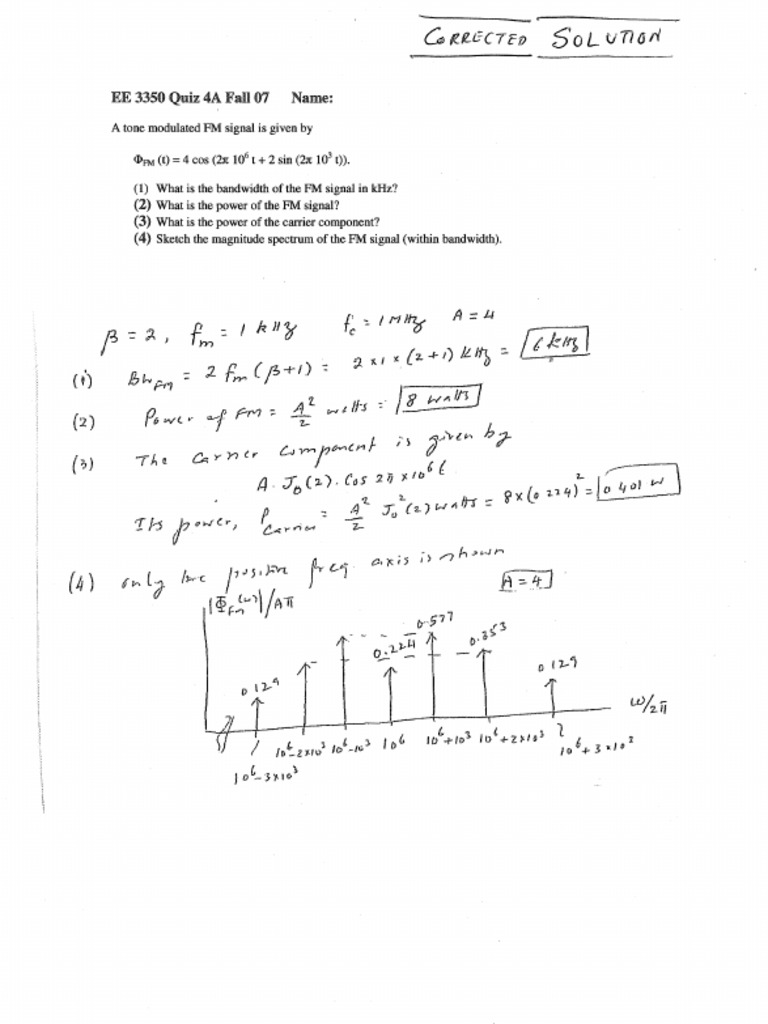 CORRECTED SOLUTION
EE 3350 Quiz 4A Fall 07 Name:
A tone modulated FM signal is given by
ΦFM (t) = 4 cos (2π 10⁶ t + 2 sin (2π 10³ t)).
(1) What is the bandwidth of the FM signal in kHz?
(2) What is the power of the FM signal?
(3) What is the power of the carrier component?
(4) Sketch the magnitude spectrum of the FM signal (within bandwidth).
β = 2, fm = 1 kHz fc = 1 MHz A = 4
(1) BWFM = 2 fm (β+1) = 2 x 1 x (2+1) kHz = 6 kHz
(2) Power of FM = A²/2 watts = 8 watts
(3) The carrier component is given by
A. J₀(2). Cos 2π x 10⁶ t
Its power, Pcarrier = A²/2 J₀²(2) watts = 8 x (0.224)² = 0.401 W
(4) only the positive freq. axis is shown
A = 4
|ΦFM(ω)|/Aπ
0.577
0.224 0.353
0.129 0.129
ω/2π
10⁶-2x10³ 10⁶-10³ 10⁶ 10⁶+10³ 10⁶+2x10³ 10⁶+3x10³
10⁶-3x10³